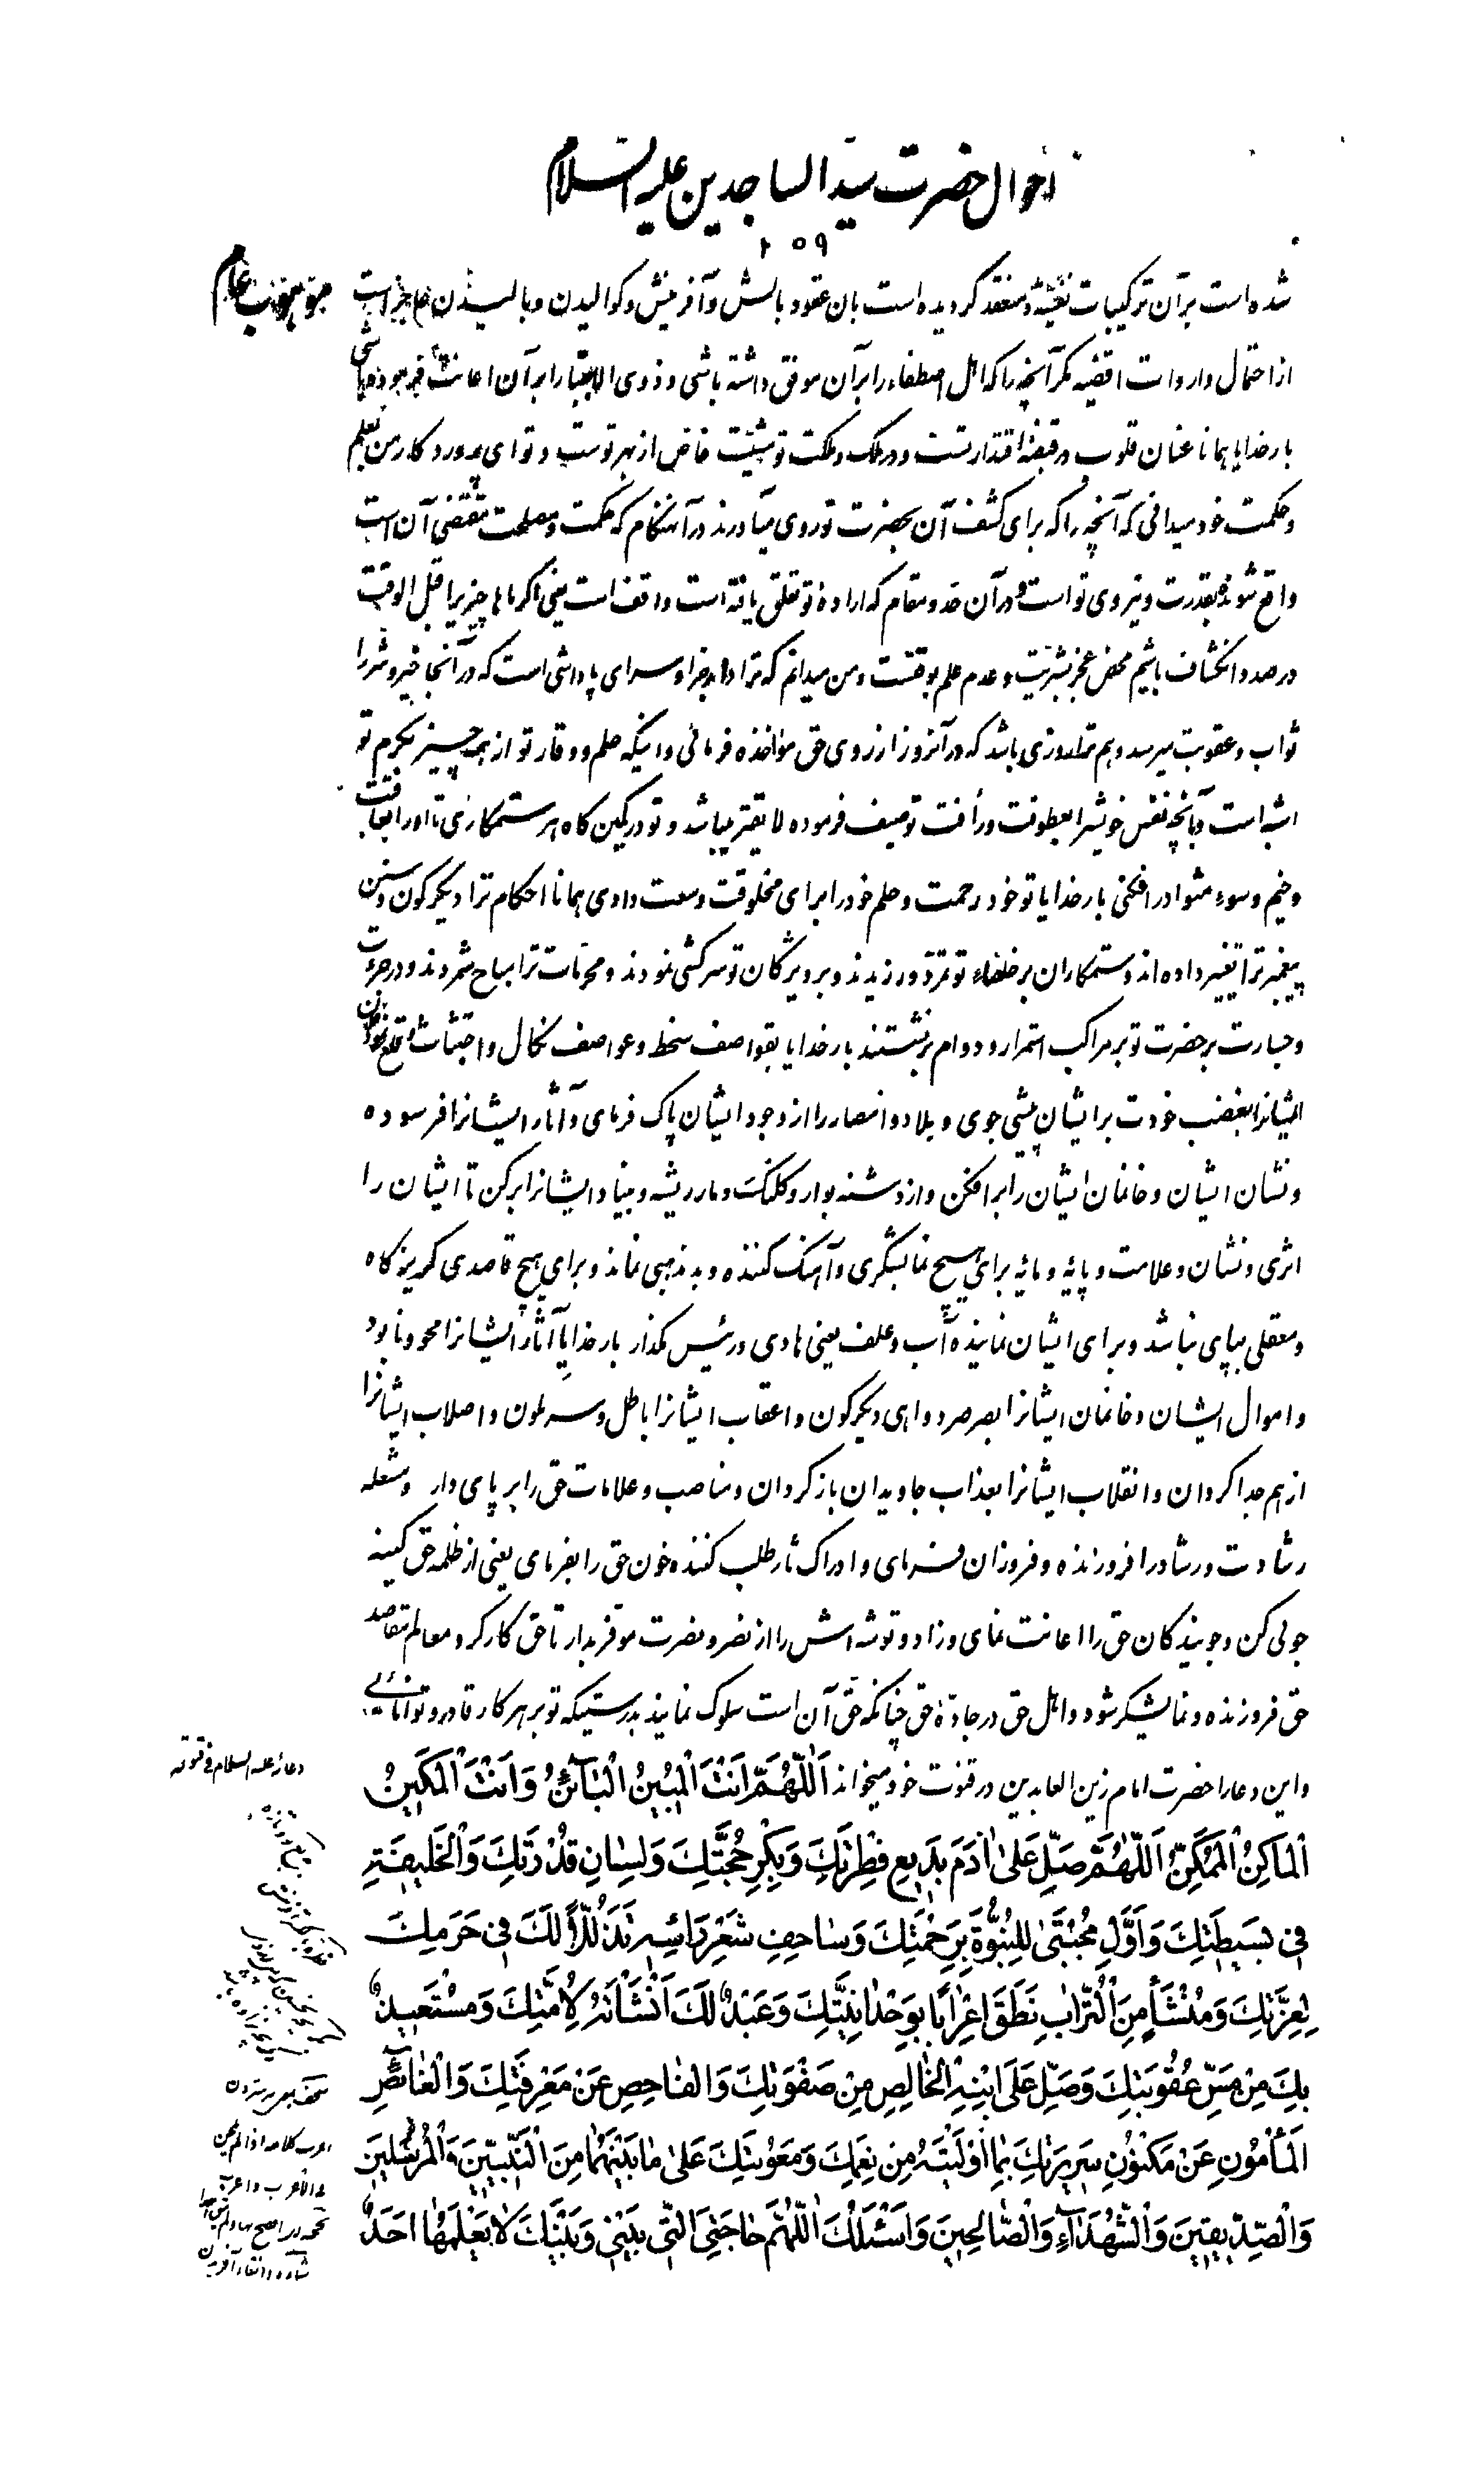 احوال حضرت سیدالساجدین علیه السلام
۲۵۹
شده است بر آن ترکیبات نفیسه و منعقد گردیده است بان عقود بالش و آفرینش و کوالیدن و بالیدن
از احتمال واردات اقضیه مگر آنچه را که اهل اصطفاء را بر آن موفق داشته باشی و ذوی الاجتبا را بر آن اعانت فرموده باشی
بار خدایا همانا عنان قلوب در قبضه اقتدار تست و در ملک و ملکت تو مشیت خاص از بهر توست و تو ای پروردگار من بعلم
و حکمت خود میدانی که آنچه را که برای کشف آن بحضرت تو روی میآورند در آنهنگام که حکمت و مصلحت مقتضی آن است
واقع شونده بقدرت و نیروی تو است و در آن حد و مقام که ارادهٔ تو تعلق یافته است واقف است یعنی اگر ماها چیزیرا قبل الوقت
در صدد انکشاف باشیم محض عجز بشریت و عدم علم بوقتست و من میدانم که ترا دار جزا و سرای پاداشی است که در آنجا خیر و شر را
ثواب و عقوبت میرسد و هم ترا روزی باشد که در آنروز از روی حق مؤاخذه فرمائی و اینکه حلم و وقار تو از همه چیز بکرم تو
اشبه است و بآنچه نفس خویشرا بعطوفت و رأفت توصیف فرموده لایقتر میباشد و تو در کمین کاه هر ستمکاری تا او را بعاقبت
وخیم و سوء مثوا در افکنی بار خدایا تو خود رحمت و حلم خود را برای مخلوقت وسعت دادی همانا احکام ترا دیگرگون و سنن
پیغمبر ترا تغییر داده اند و ستمکاران بر خلفاء تو تمرد ورزیدند و بر ویژگان تو سرکشی نمودند و محرمات ترا مباح شمردند و در جرئت
و جسارت بر حضرت تو بر مراکب استمرار و دوام برنشستند بار خدایا بقواصف سخط و عواصف نکال و اجتثاث و قلع نمودن
ایشانرا بغضب خودت بر ایشان پیشی جوی و بلاد و امصار را از وجود ایشان پاک فرمای و آثار ایشانرا فرسوده
و نشان ایشان و خانمان ایشان را برافکن و از دشنه بوار و کلنک دمار ریشه و بنیاد ایشانرا برکن تا ایشان را
اثری و نشان و علامت و پایه و مایه برای هیچ نمایشگری و آهنک کننده و بدمذهبی نماند و برای هیچ قاصدی گریزگاه
و معقلی بپای نباشد و برای ایشان نماینده آب و علف یعنی هادی و رئیس مگذار بار خدایا آثار ایشانرا محو و نابود
و اموال ایشان و خانمان ایشانرا بصرصر دواهی دیگرگون و اعقاب ایشانرا باطل و سرنگون و اصلاب ایشانرا
از هم جدا گردان و انقلاب ایشانرا بعذاب جاویدان باز گردان و مناصب و علامات حق را بر پای دار و مشعله
رشادت و رشاد را فروزنده و فروزان فرمای و ادراک ثار طلب کننده خون حق را بفرمای یعنی از ظلمه حق کینه
جوئی کن و جویندگان حق را اعانت نمای و زاد و توشه اش را از نصر و نصرت موفر بدار تا حق کارگر و معالم مقاصد
حق فروزنده و نمایشگر شود و اهل حق در جادهٔ حق چنانکه حق آن است سلوک نمایند بدرستیکه تو بر هر کار قادر و توانائی
و این دعا را حضرت امام زین العابدین در قنوت خود میخواند اَللّٰهُمَّ اَنْتَ الْمُبِینُ الْبٰآئِنُ وَاَنْتَ الْمَکِینُ
الْمٰاکِنُ الْمُمَکِّنُ اَللّٰهُمَّ صَلِّ عَلیٰ اٰدَمَ بَدِیعِ فِطْرَتِکَ وَبِکْرِ حُجَّتِکَ وَلِسٰانِ قُدْرَتِکَ وَالْخَلِیفَةِ
فِی بَسِیطَتِکَ وَاَوَّلِ مُجْتَبًی لِلنُّبُوَّةِ بِرَحْمَتِکَ وَسٰاحِفِ شَعْرِ رَاْسِهِ تَذَلُّلًا لَکَ فِی حَرَمِکَ
لِعِزَّتِکَ وَمُنْشَأٍ مِنَ التُّرٰابِ نَطَقَ اِعْرٰابًا بِوَحْدٰانِیَّتِکَ وَعَبْدٌ لَکَ اَنْشَأْتَهُ لِاُمَّتِکَ وَمُسْتَعِیذٌ
بِکَ مِنْ مَسِّ عُقُوبَتِکَ وَصَلِّ عَلَی ابْنِهِ الْخٰالِصِ مِنْ صَفْوَتِکَ وَالْفٰاحِصِ عَنْ مَعْرِفَتِکَ وَالْغٰآئِصِ
الْمَأْمُونِ عَنْ مَکْنُونِ سَرِیرَتِکَ بِمٰا اَوْلَیْتَهُ مِنْ نِعَمِکَ وَمَعُونَتِکَ عَلیٰ مٰا بَیْنَهُمٰا مِنَ النَّبِیِّینَ وَالْمُرْسَلِینَ
وَالصِّدِّیقِینَ وَالشُّهَدٰآءِ وَالصّٰالِحِینَ وَاَسْئَلُکَ اللّٰهُمَّ حٰاجَتِیَ الَّتِی بَیْنِی وَبَیْنَکَ لٰا یَعْلَمُهٰا اَحَدٌ
دعائه علیه السلام فی قنوته